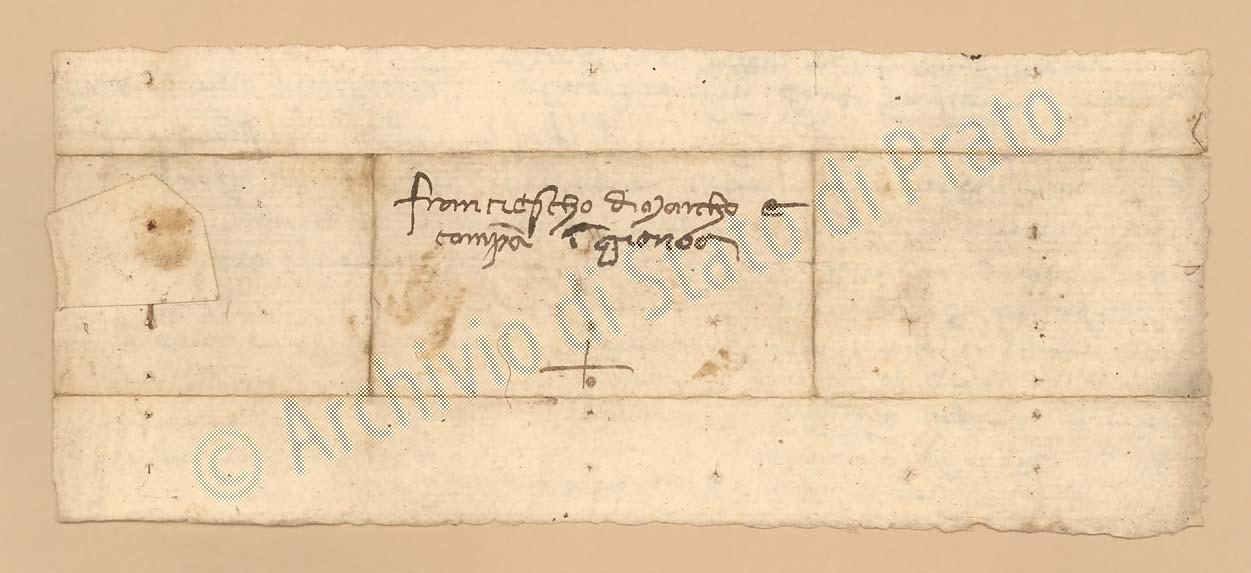 franciescho di Marcho e
compa in gienova
© Archivio di Stato di Prato